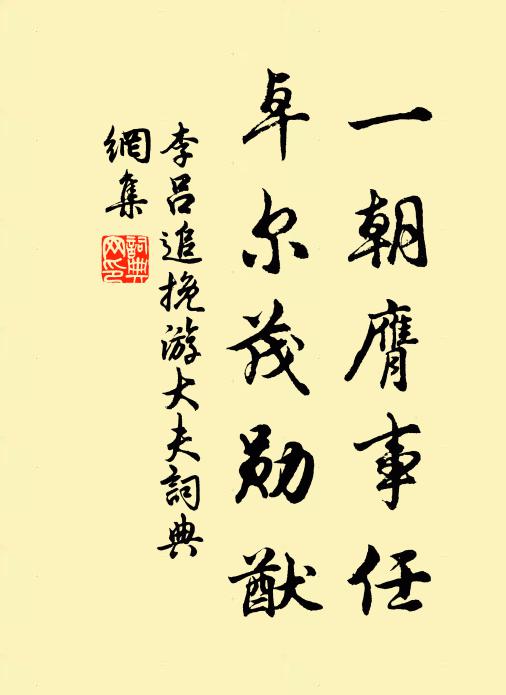 一朝膺事任
卓尔茂勋猷
李吕追挽游大夫詞典
網集
詞典網印